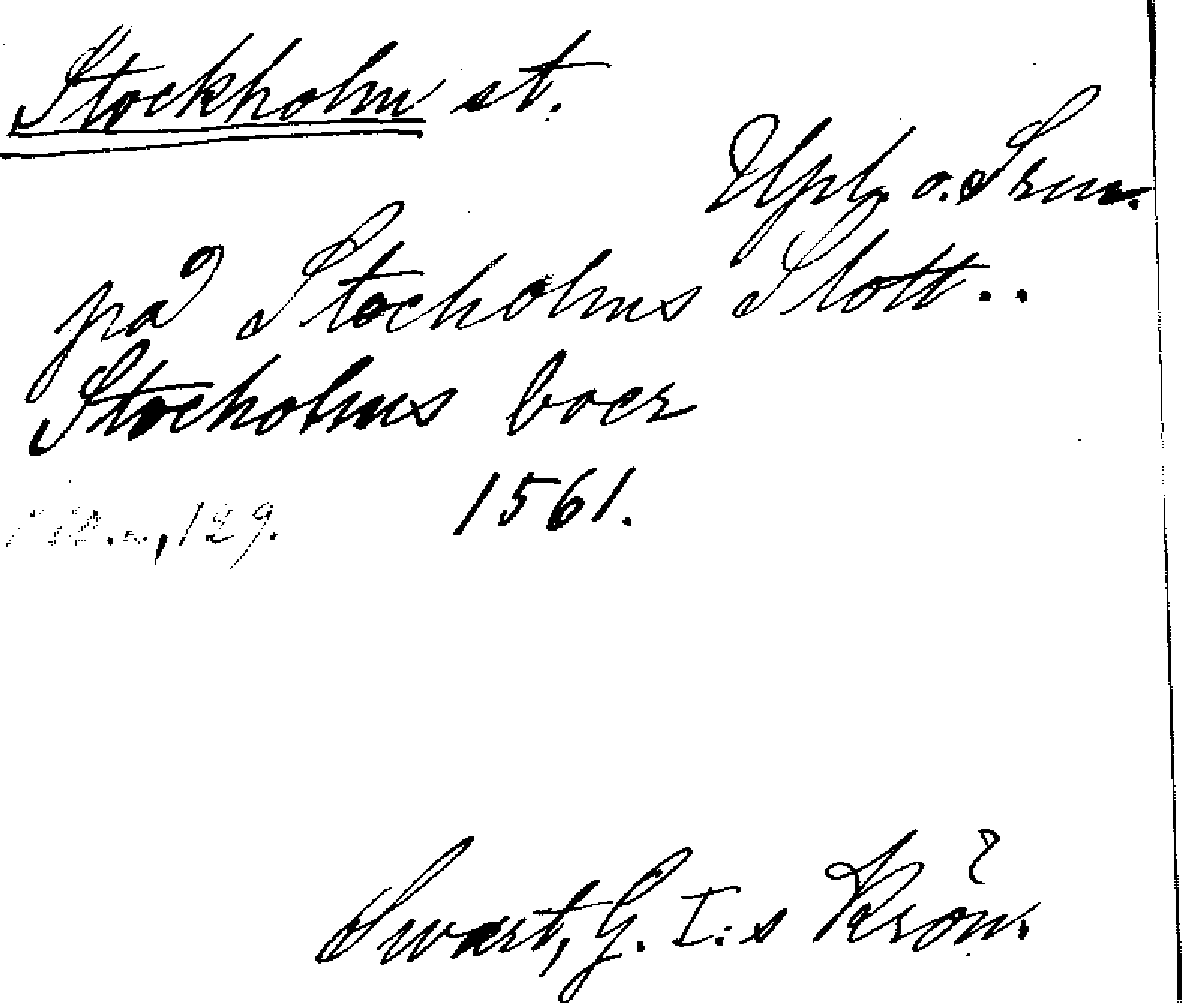 Stockholm st.
Upl. o. Srm.
på Stocholms Slott..
Stocholms boer
1561.
129.
Swart, G. I:s Krön.